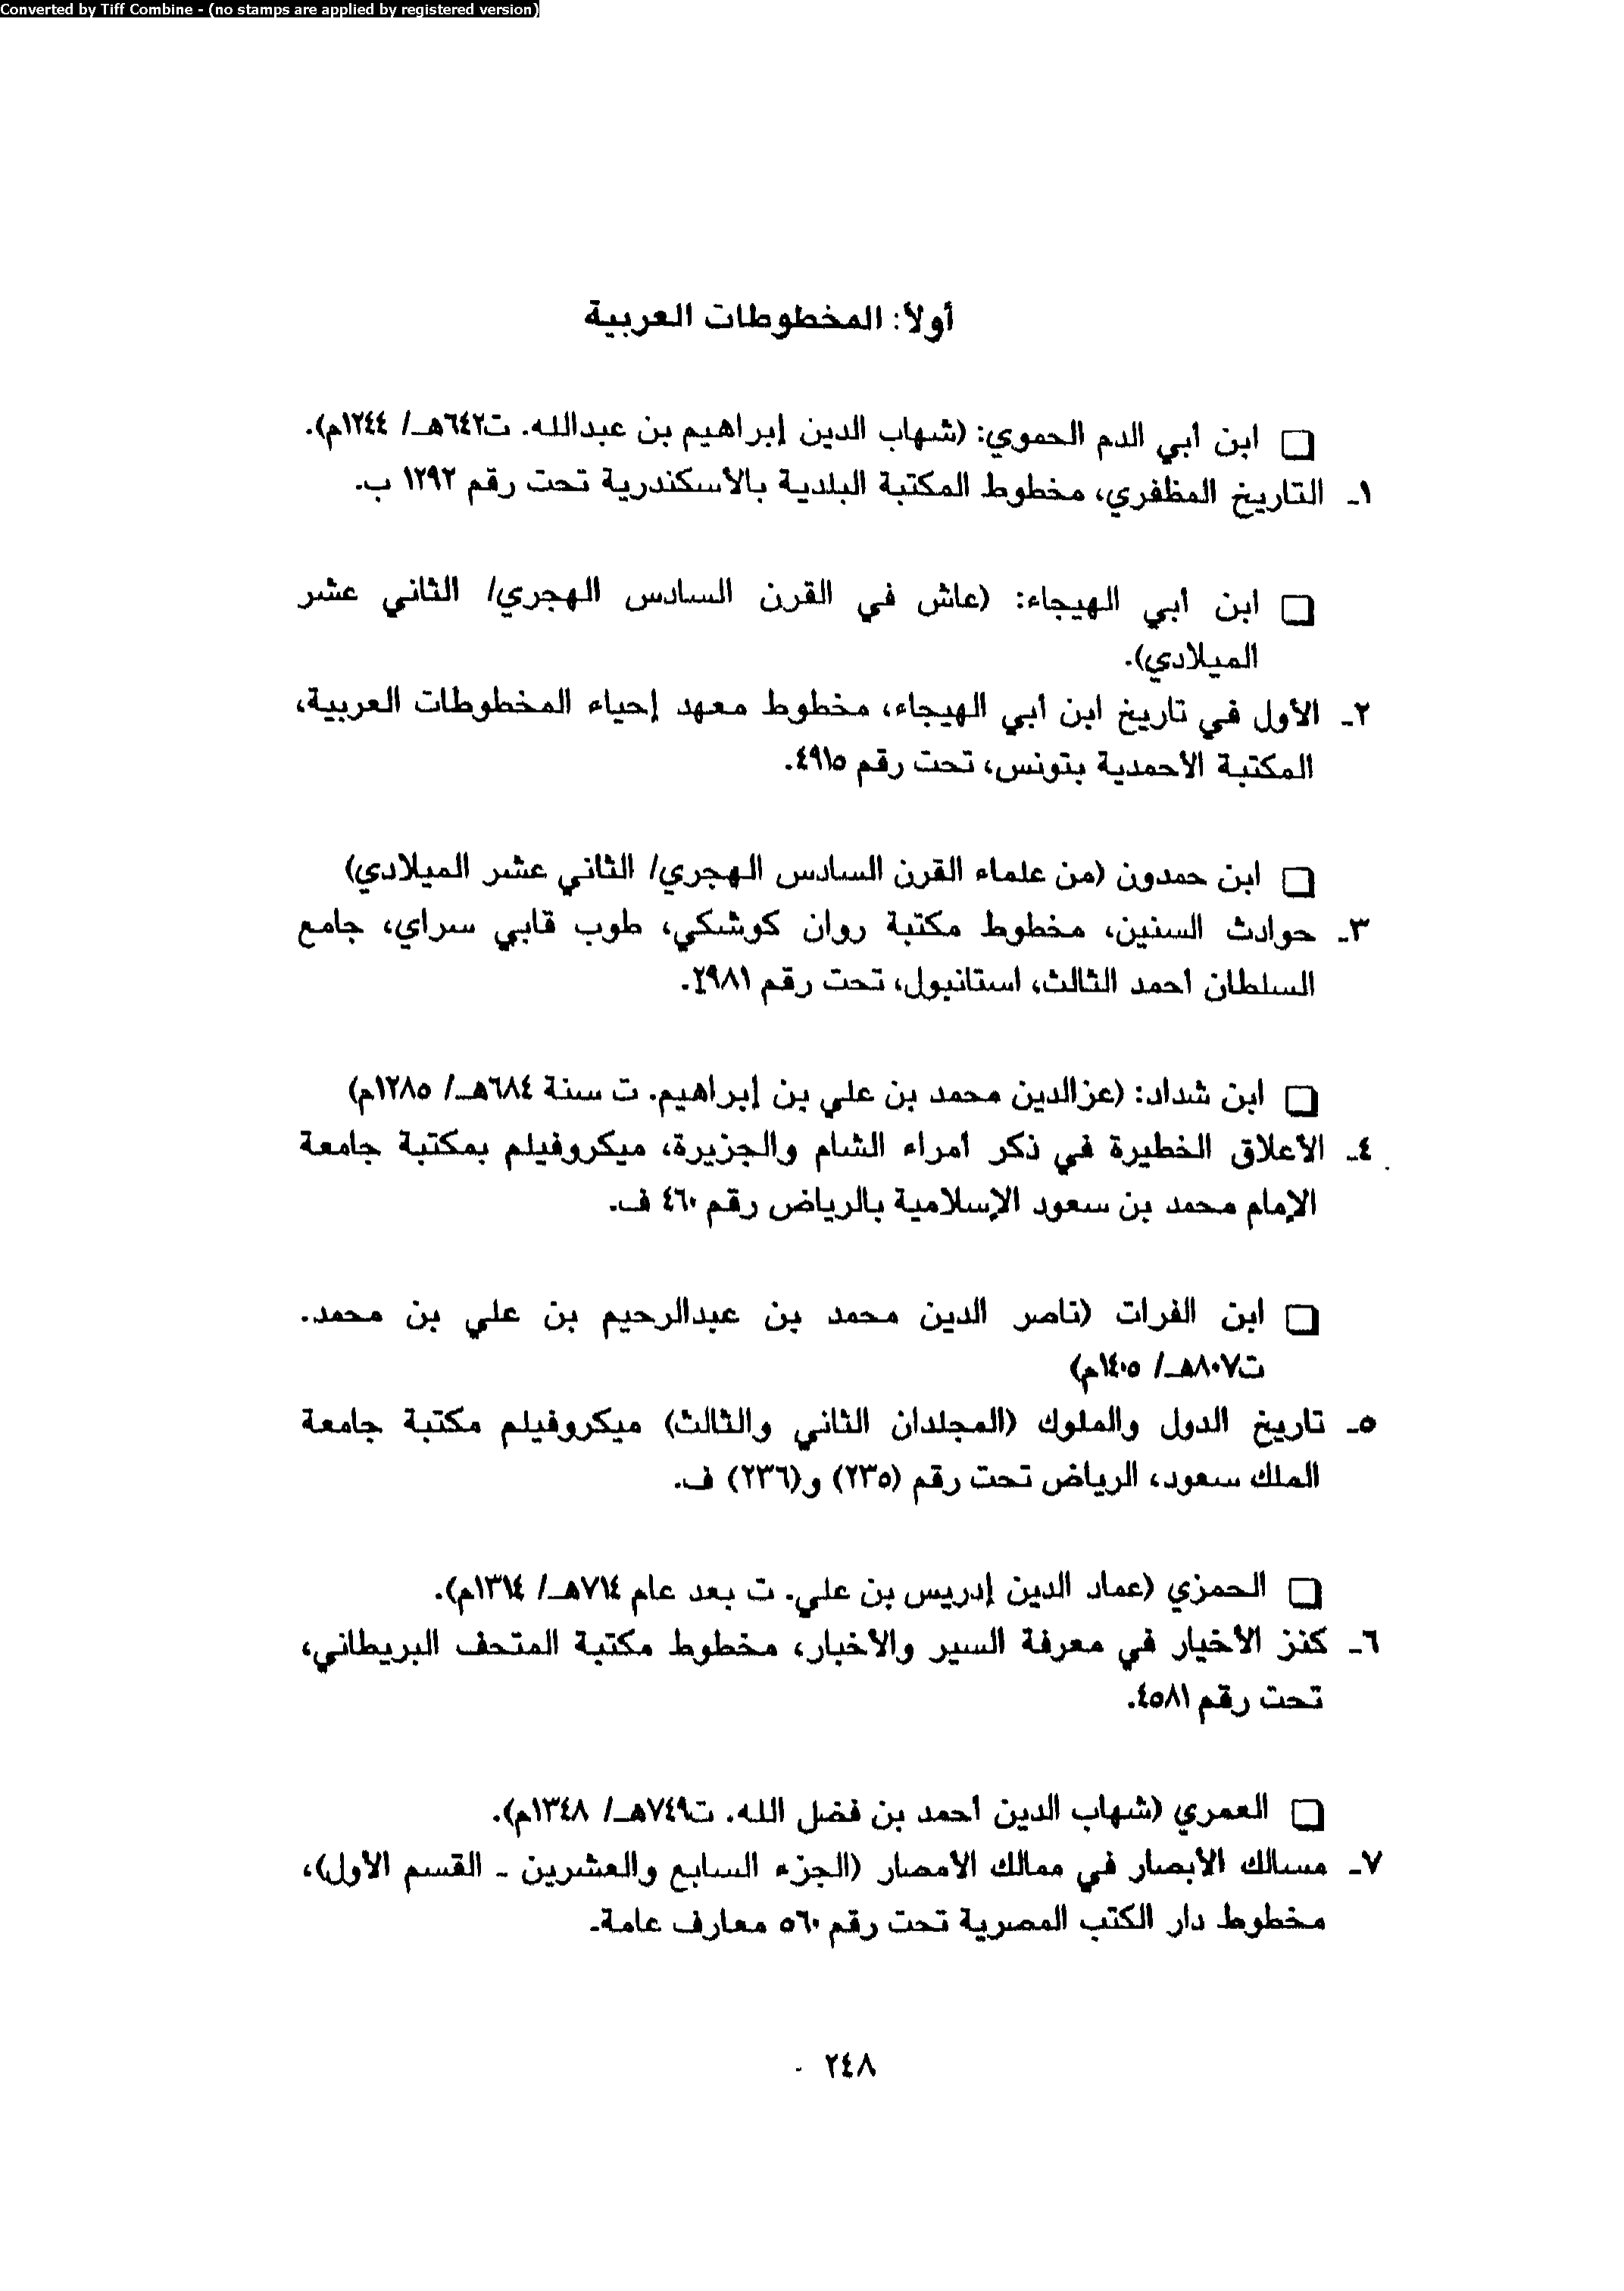 Converted by Tiff Combine - (no stamps are applied by registered version)
أولاً: المخطوطات العربية
❏ ابن أبي الدم الحموي: (شهاب الدين إبراهيم بن عبدالله. ت٦٤٢هـ/ ١٢٤٤م).
١ـ التاريخ المظفري، مخطوط المكتبة البلدية بالأسكندرية تحت رقم ١٢٩٢ ب.
❏ ابن أبي الهيجاء: (عاش في القرن السادس الهجري/ الثاني عشر
الميلادي).
٢ـ الأول في تاريخ ابن أبي الهيجاء، مخطوط معهد إحياء المخطوطات العربية،
المكتبة الأحمدية بتونس، تحت رقم ٤٩١٥.
❏ ابن حمدون (من علماء القرن السادس الهجري/ الثاني عشر الميلادي)
٣ـ حوادث السنين، مخطوط مكتبة روان كوشكي، طوب قابي سراي، جامع
السلطان أحمد الثالث، استانبول، تحت رقم ٢٩٨١.
❏ ابن شداد: (عزالدين محمد بن علي بن إبراهيم. ت سنة ٦٨٤هـ/ ١٢٨٥م)
٤ـ الأعلاق الخطيرة في ذكر أمراء الشام والجزيرة، ميكروفيلم بمكتبة جامعة
الإمام محمد بن سعود الإسلامية بالرياض رقم ٤٦٠ ف.
❏ ابن الفرات (ناصر الدين محمد بن عبدالرحيم بن علي بن محمد.
ت٨٠٧هـ/ ١٤٠٥م)
٥ـ تاريخ الدول والملوك (المجلدان الثاني والثالث) ميكروفيلم مكتبة جامعة
الملك سعود، الرياض تحت رقم (٢٣٥) و(٢٣٦) ف.
❏ الحمزي (عماد الدين إدريس بن علي. ت بعد عام ٧١٤هـ/ ١٣١٤م).
٦ـ كنز الأخيار في معرفة السير والأخبار، مخطوط مكتبة المتحف البريطاني،
تحت رقم ٤٥٨١.
❏ العمري (شهاب الدين أحمد بن فضل الله. ت٧٤٩هـ/ ١٣٤٨م).
٧ـ مسالك الأبصار في ممالك الأمصار (الجزء السابع والعشرين ـ القسم الأول)،
مخطوط دار الكتب المصرية تحت رقم ٥٦٠ معارف عامة.
٢٤٨ -